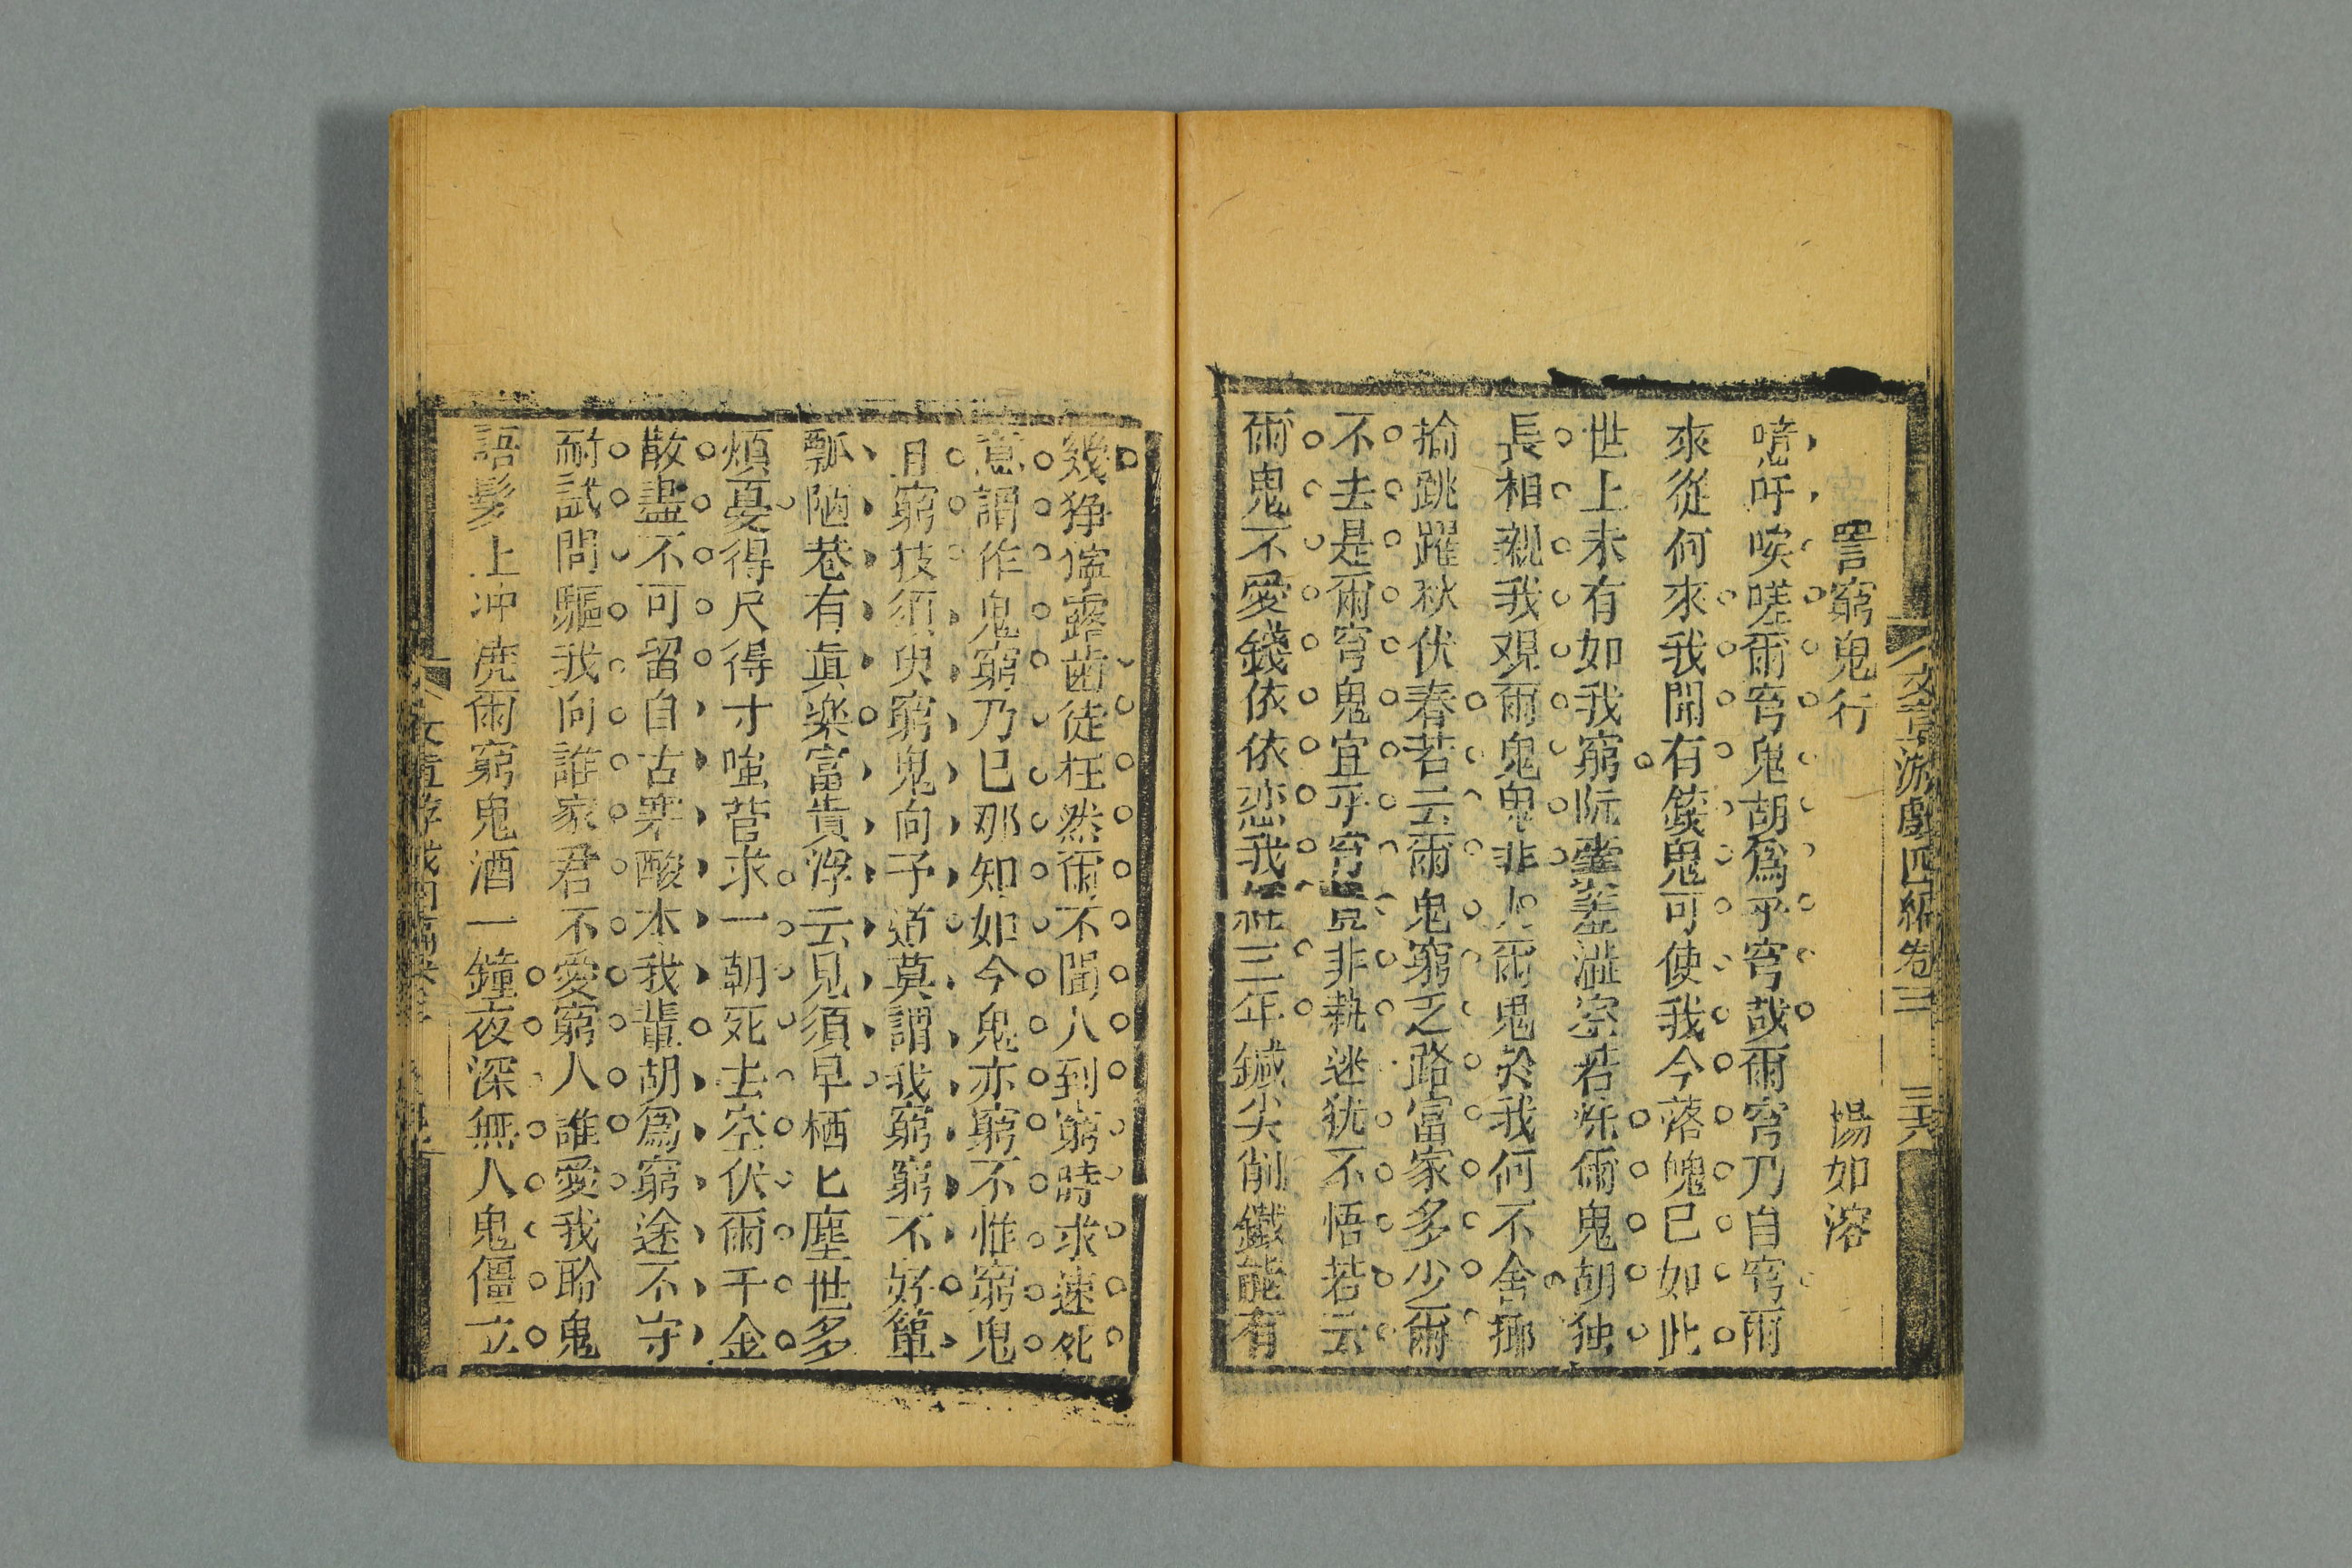 文章游戲四編卷三 三六
詈窮鬼行 楊如溶
噫吁唉嗟爾穹鬼胡爲乎穹哉爾穹乃自穹爾
來從何來我聞有錢鬼可使我今落魄已如此
世上未有如我窮阮囊羞澁空若爍爾鬼胡独
長相親我覌爾鬼鬼非人爾鬼於我何不舍揶
揄跳躍秋伏春若云爾鬼窮乏路富家多少爾
不去是爾穹鬼宜乎穹 非執迷犹不悟若云
爾鬼不愛錢依依恋我 三年鍼尖削鐵能有
幾狰儖露齒徒枉然爾不聞人到窮時求速死
意謂作鬼窮乃已那知如今鬼亦窮不惟窮鬼
且窮技須臾窮鬼向予道莫謂我窮窮不好簞
瓢陋巷有眞楽富貴浮云見須早栖匕塵世多
煩憂得尺得寸蚩菅求一朝死去空伏爾千金
散盡不可留自古寒酸本我輩胡爲窮途不守
耐試問驅我向誰家君不愛窮人誰愛我聆鬼
語髮上冲澆爾窮鬼酒一鐘夜深無人鬼僵立